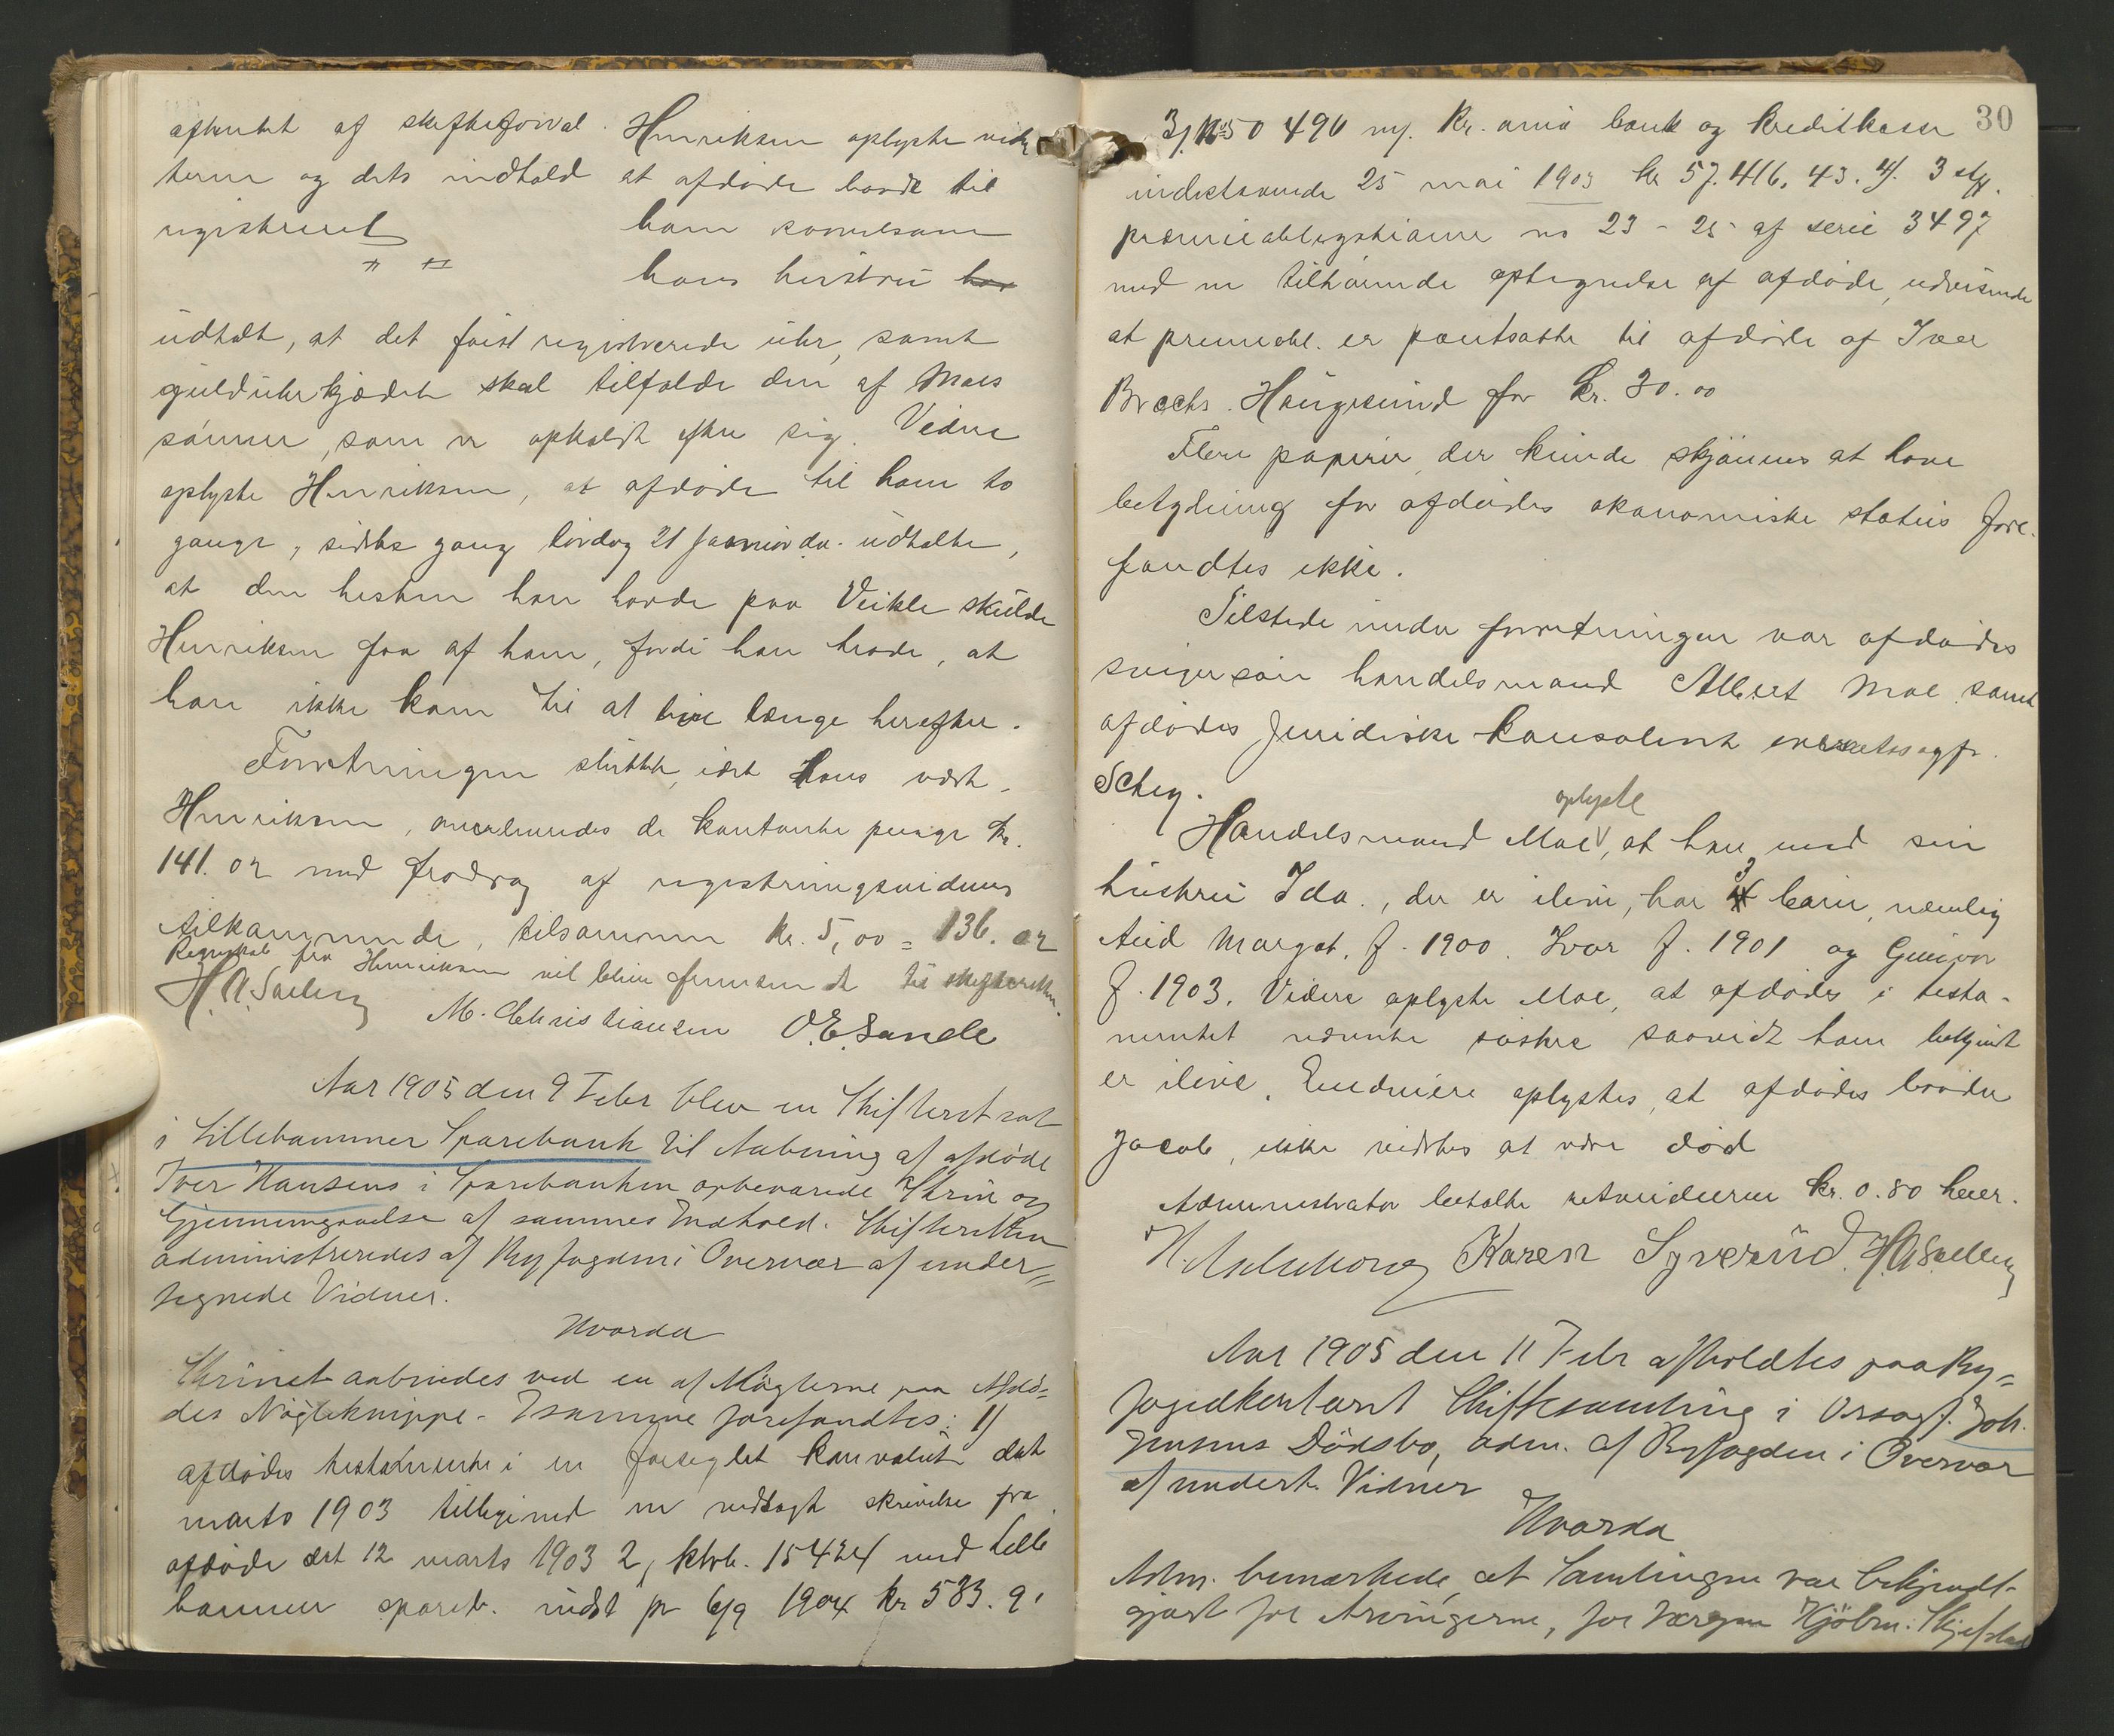 afhentet af skifteforval
teren og dets indhold
registreret
Henriksen oplyste vider
at afdøde havde til
ham saavelsom
hans hustru har
udtalt, at det først registrerede uhr, samt
gulduhrkjædet skal tilfalde den af Moes
sønner, som er opkaldt efter sig. Videre
oplyste Henriksen, at afdøde til ham to
gange, sidste gang lørdag 21 januar da. udtalte,
at den hesten han havde paa Veikle skulde
Henriksen faa af ham, fordi han troede, at
han ikke kom til at leve længe herefter.
Forretningen sluttet, idet Hans vært.
Henriksen, overleveredes de kontante penge kr.
141. 02 med fradrag af registreringsvidners
tilkommende, tilsammen kr. 5,00 = 136. 02
Regnskab fra Henriksen vil blive fremsendt til skifteretten.
H. A. Saelleg M. Christiansen O. E. Sande
Aar 1905 den 9 Febr blev en Skifteret sat
i Lillehammer Sparebank til Aabning af afdøde
Iver Hansens i Sparebanken opbevarede Skrin og
Gjennemgaaelse af sammes Indhold. Skifteretten
administreredes af Byfogden i Overvær af under=
tegnede Vidner.
Hvorda
Skrinet aabnedes ved en af Nøglerne paa Afdø=
des Nøgleknippe. I samme forefandtes: 1)
afdødes testamente i en forseglet konvolut dat
marts 1903 tilligemed en vedlagt skrivelse fra
afdøde dat 12 marts 1903 2, ktrb. 15424 med Lille
hammer spareb. indst pr 6/9 1904 kr 583. 91
30
3/. No 50 490 m/. Kr. ania bank og kreditkasse
indestaaende 25 mai 1903 kr 57.416, 43. 4/. 3 stk.
præmieobligationer no 23 - 25 af serie 3497
med en tilhørende optegnelse af afdøde, udvisende
at premieobl. er pantsatte til afdøde af Iver
Brechs. Haugesund for kr. 30.00
Flere papirer, der kunde skjønnes at have
betydning for afdødes økonomiske status fore-
fandtes ikke.
Tilstede under forretningen var afdødes
svigersøn handelsmand Albert Moe samt
afdødes juridiske konsulent overretssagfr.
Schey.
oplyste
Handelsmand Moe, at han med sin
hustru Ida., der er ilive, har 3 børn, nemlig
Aud Margot. f. 1900. Ivar f. 1901 og Gunvor
f. 1903. Videre oplyste Moe, at afdødes i testa-
mentet nævnte søstre saavidt ham bekjendt
er ilive. Endvidere oplystes, at afdødes broder
Jacob, ikke vidstes at være død
Administrator betalte retsvidnerne kr. 0.80 hver.
Karen Syverud. H. A. Saelleg
Aar 1905 den 11 Febr afholdtes paa By=
fogedkontoret Skiftesamling i Orsagf. Joh.
Jensens Dødsbo, adm. af Byfogden i Overvær
af undert. Vidner
Hvorda
Adm. bemærkede, at Samlingen var bekjendt-
gjort for Arvingerne, for Værgen Kjøbm. Skjefstad